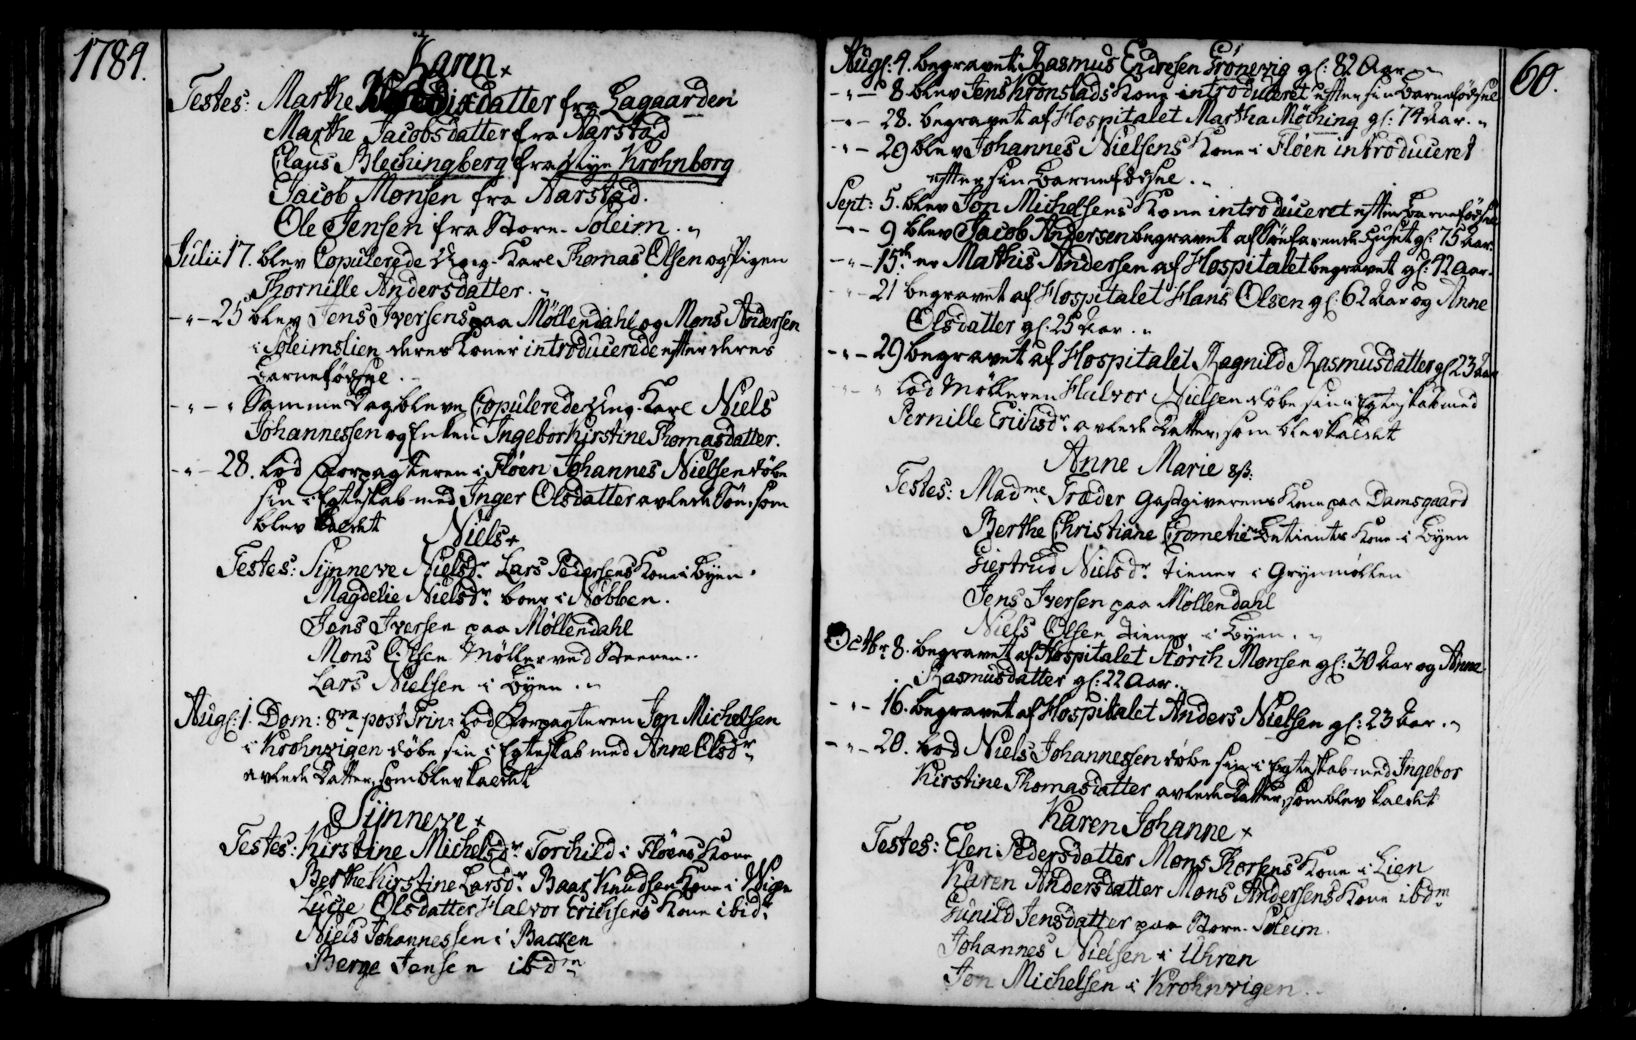 1784.
Karen +
Testes: Marthe datter fra Lagaarden
Marthe Jacobsdatter fra Aarstad
Claus Blechingberg fra Nye Krohnborg
Jacob Monsen fra Aarstad.
Ole Jensen fra Store-Soleim.
Julii 17. blev Copulerede Ung-Karl Thomas Olsen og Pigen
Thornille Andersdatter.
- " - 25 blev Jens Iversens paa Möllendahl og Mons Andersen
i Soleimslien deres Koner introducerede efter deres
Barnefödsel.
- " - " Samme Dag bleve Copulerede Ung-Karl Niels
Johannessen og Enken Ingebor Kirstine Thomasdatter.
- " - 28. lod Forpagteren i Flöen Johannes Nielsen döbe
sin i Egteskab med Inger Olsdatter avlede Sön, som
blev kaldet
Niels +
Testes: Synneve Nielsdr Lars Pedersens Kone i Byen.
Magdelie Nielsdr boer i Nöbben.
Jens Iversen paa Möllendahl
Mons Olsen Möller ved Steenen.
Lars Nielsen i Byen.
Aug: 1. Dom: 8va post Trin: lod Forpagteren Jon Michelsen
i Krohnvigen döbe sin i Egteskab med Anne Olsdr
avlede Datter, som blev kaldet
Synneve +
Testes: Kirstine Michelsdr Torchild i Flöens Kone
Berthe Kirstine Larsdr Baar Knudsen Kone i Vigen
Lucie Olsdatter Halvor Erichsens Kone ibid:
Niels Johannessen i Backen
Berge Jensen ibdm
60.
Aug: 4. begravet Rasmus Endresen Grönevig gl: 82 Aar
- " - 8 blev Jens Kronstads Kone introduceret efter sin Barnefödsel
- " - 28. begravet af Hospitalet Martha Möching gl: 74 Aar.
- " - 29 blev Johannes Nielsens Kone i Flöen introduceret
efter sin Barnefödsel.
Sept: 5. blev Jon Michelsens Kone introduceret efter Barnefödsel
- " - 9 blev Jacob Andersen begravet af Söefarende Huset gl: 75 Aar.
- " - 15 er Mathis Andersen af Hospitalet begravet gl: 92 Aar.
- " - 21 begravet af Hospitalet Hans Olsen gl: 62 Aar og Anne
Olsdatter gl: 25 Aar.
- " - 29 begravet af Hospitalet Ragnild Rasmusdatter gl: 23 Aar
- " - " lod Mölleren Halvor Nielsen döbe sin i Egteskab med
Pernille Erichsdr avlede Datter, som blev kaldet
Anne Marie 8ß:
Testes: Madme Træder Gastgiverens Kone paa Damsgaard
Berthe Christiane Betients Kone i Byen
Giertrud Nielsdr tiener i Grynmöllen
Jens Iversen paa Möllendahl
Niels Olsen tiener i Byen.
Octbr 8. begravet af Hospitalet Störch Monsen gl: 30 Aar og Anne
Rasmusdatter gl: 22 Aar.
- " - 16. begravet af Hospitalet Anders Nielsen gl: 23 Aar.
- " - 20. lod Niels Johannessen döbe sin i Egteskab med Ingebor
Kirstine Thomasdatter avlede Datter, som blev kaldet
Karen Johanne +
Testes: Elen Pedersdatter Mons Thorsens Kone i Lien
Karen Andersdatter Mons Andersens Kone ibdm
Gunild Jensdatter paa Store-Soleim.
Johannes Nielsen i Uhren
Jon Michelsen i Krohnvigen.